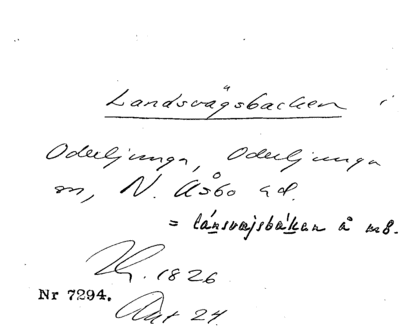 Landsvägsbacken i
Oderljunga, Oderljunga
sn, N. Åsbo hd.
= lánsvajsbákan å mB.
1826
Nr 7294.
Ant 24